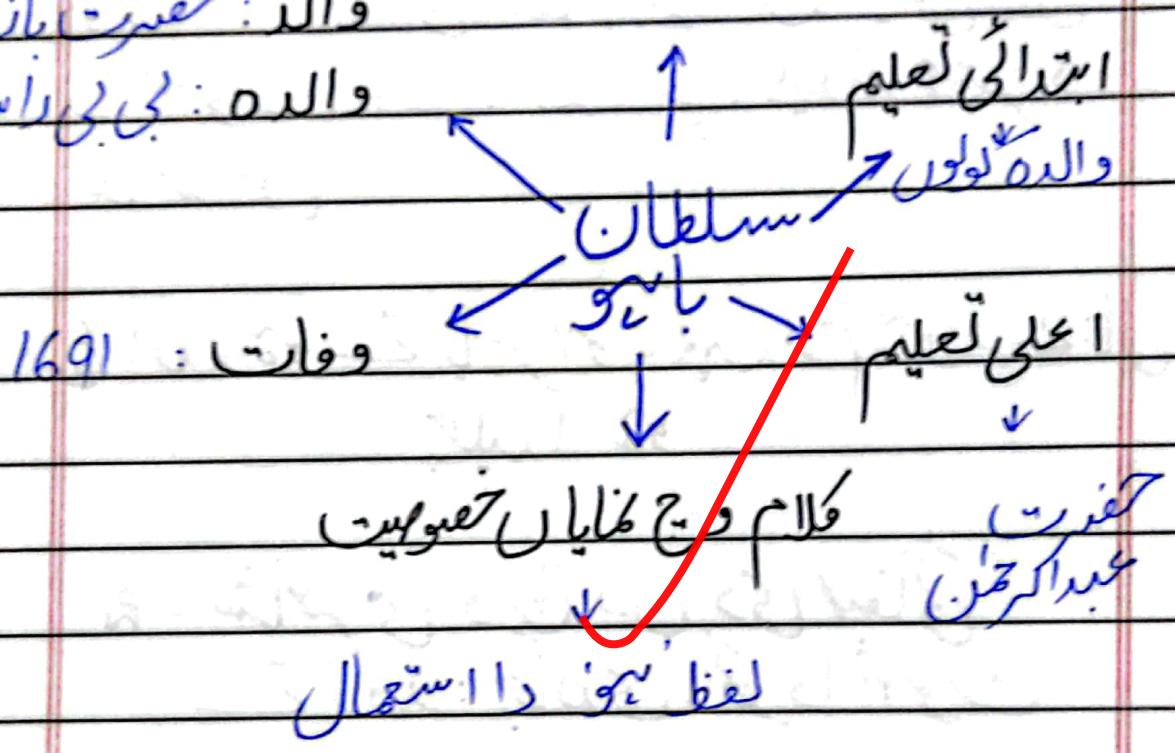 والد: حضرت
والده: بی بی
ابتدائی تعلیم
والدہ کولوں
سلطان
باہو
اعلی تعلیم
وفات: 1691
حضرت
عبدالرحمٰن
کلام وچ نمایاں خصوصیت
لفظ 'ہو' دا استعمال